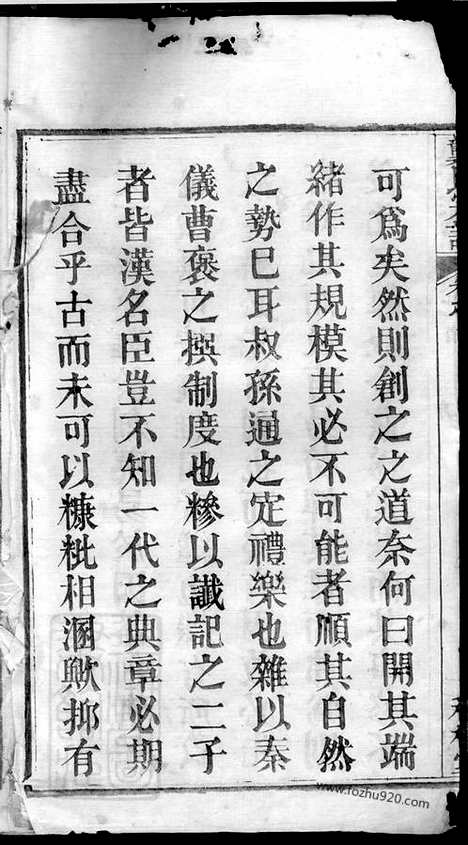 可為矣然則創之之道奈何曰開其端
緒作其規模其必不可能者順其自然
之勢已耳叔孫通之定禮樂也雜以秦
儀曹褒之撰制度也糝以讖記之二子
者皆漢名臣豈不知一代之典章必期
盡合乎古而未可以糠粃相溷歟抑有
www.fozhu920.com